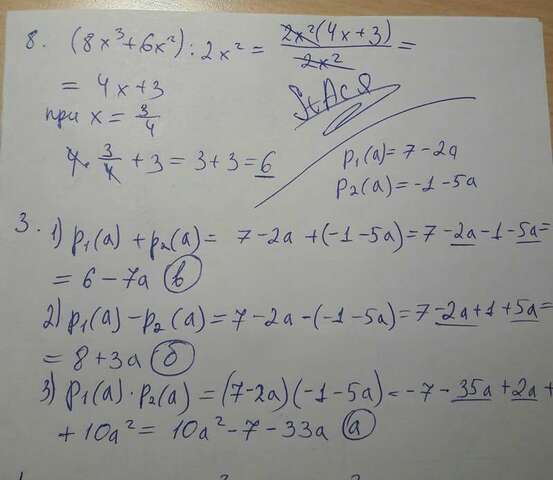 8. (8x³+6x²) : 2x² = 2x²(4x+3) / 2x² =
= 4x+3
при x = 3/4
4 · 3/4 + 3 = 3+3 = 6
StAcЯ
p₁(a) = 7-2a
p₂(a) = -1-5a
3. 1) p₁(a) + p₂(a) = 7-2a + (-1-5a) = 7-2a-1-5a =
= 6-7a (в)
2) p₁(a) - p₂(a) = 7-2a-(-1-5a) = 7-2a+1+5a =
= 8+3a (б)
3) p₁(a) · p₂(a) = (7-2a)(-1-5a) = -7-35a+2a+
+10a² = 10a²-7-33a (a)